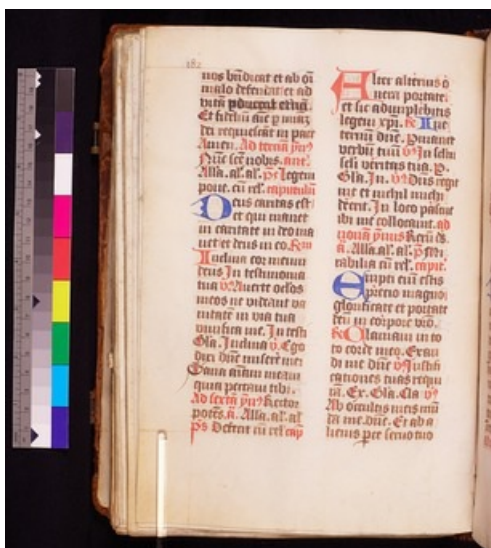 182
nos bn̄dicat et ab oī
malo defendat et ad
vitā perducat eternā.
Et fideliū aīe p mīaz
dei requiescāt in pace
Amen. Ad terciā ym9
Nūc scē nobis. ant.
Alla. al. al. ps Legem
pone. cū rel. capitulū
Deus caritas est
et qui manet
in caritate in deo ma
net et deus in eo.
Inclina cor meum
deus In testimonia
tua ỹ Auerte oclos
meos ne videant va
nitatē in via tua
viuifica me. In testi
Gla. Inclina ỹ. Ego
dixi dn̄e miserere mei
Sana aīam meam
quia peccaui tibi.
Ad sextā ym9 Rector
potēs. Alla. al. al
ps Defecit cū rel cap
Alter alterius o
nera portate.
et sic adimplebitis
legem xpi. In e
ternū dn̄e. Permanet
verbū tuū ỹ In seculū
seculi veritas tua. P.
Gla. In. ỹ Dn̄s regit
me et nichil michi
deerit. In loco pascue
ibi me collocauit. ad
nonā ymnus Rerū ds.
Alla. al. al. ps Mi
rabilia cū rel. capit.
Empti enī estis
precio magno
glorificate et portate
deū in corpore vr̄o.
Clamaui in to
to corde meo. Exau
di me dn̄e ỹ Iustifi
cationes tuas requi
ra. Ex. Gla. Cla ỹ
Ab occultis meis mū
da me dn̄e. Et ab a
lienis parce seruo tuo